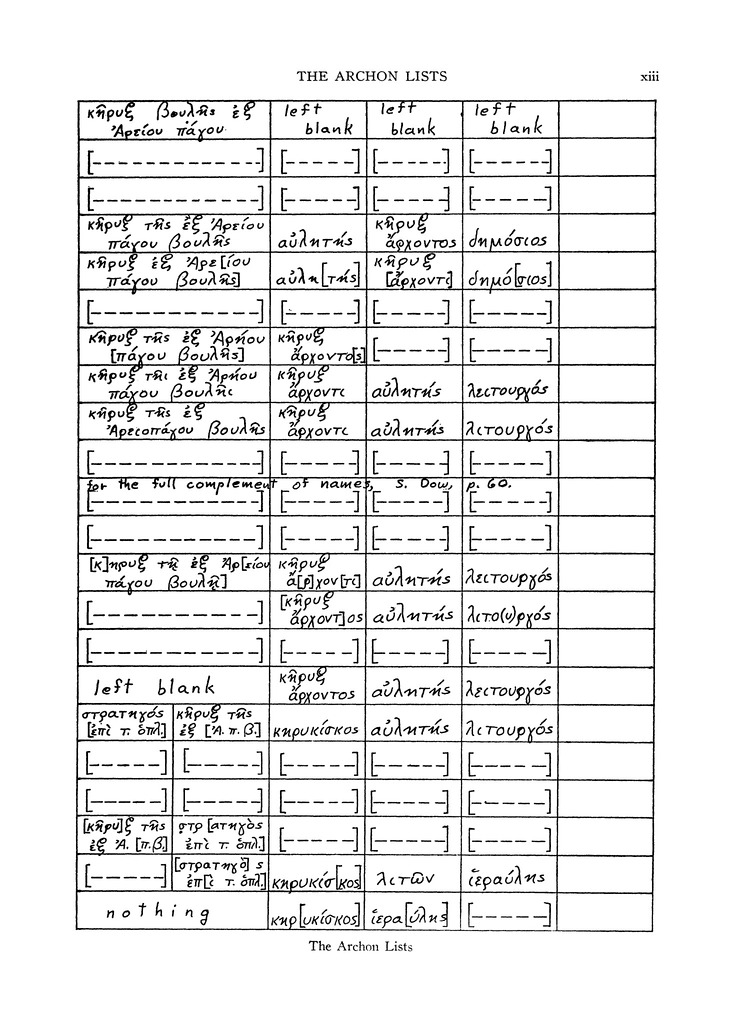 THE ARCHON LISTS xiii
κῆρυξ βουλῆς ἐξ left left left
Ἀρείου πάγου blank blank blank
[------------] [-----] [-----] [-----]
[------------] [-----] [-----] [-----]
κῆρυξ τῆς ἐξ Ἀρείου κῆρυξ
πάγου βουλῆς αὐλητής ἄρχοντος δημόσιος
κῆρυξ ἐξ Ἀρε[ίου κῆρυξ
πάγου βουλῆς] αὐλη[τής] [ἄρχοντι] δημό[σιος]
[------------] [-----] [-----] [-----]
κῆρυξ τῆς ἐξ Ἀρήου κῆρυξ
[πάγου βουλῆς] ἄρχοντο[ς] [-----] [-----]
κῆρυξ τῆι ἐξ Ἀρήου κῆρυξ
πάγου βουλῆι ἄρχοντι αὐλητής λειτουργός
κῆρυξ τῆς ἐξ κῆρυξ
Ἀρειοπάγου βουλῆς ἄρχοντι αὐλητής λιτουργός
[------------] [-----] [-----] [-----]
for the full complement of names, s. Dow, p. 60.
[------------] [-----] [-----] [-----]
[------------] [-----] [-----] [-----]
[κ]ηρυξ τῆ ἐξ Ἀρ[είου κῆρυξ
πάγου βουλῆ] ἄ[ρ]χον[τι] αὐλητής λειτουργός
[------------] [κῆρυξ
ἄρχοντ]ος αὐλητής λιτο(υ)ργός
[------------] [-----] [-----] [-----]
left blank κῆρυξ
ἄρχοντος αὐλητής λειτουργός
στρατηγός κῆρυξ τῆς
[ἐπὶ τ. ὁπλ.] ἐξ [Ἀ. π. β.] κηρυκίσκος αὐλητής λιτουργός
[-----] [-----] [-----] [-----] [-----]
[-----] [-----] [-----] [-----] [-----]
[κῆρυ]ξ τῆς στρ[ατηγὸς
ἐξ Ἀ. [π.β.] ἐπὶ τ. ὁπλ.] [-----] [-----] [-----]
[-----] [στρατηγὸ]ς
ἐπ[ὶ τ. ὁπλ.] κηρυκίσ[κος] λιτῶν ἱεραύλης
nothing κηρ[υκίσκος] ἱερα[ύλης] [-----]
The Archon Lists